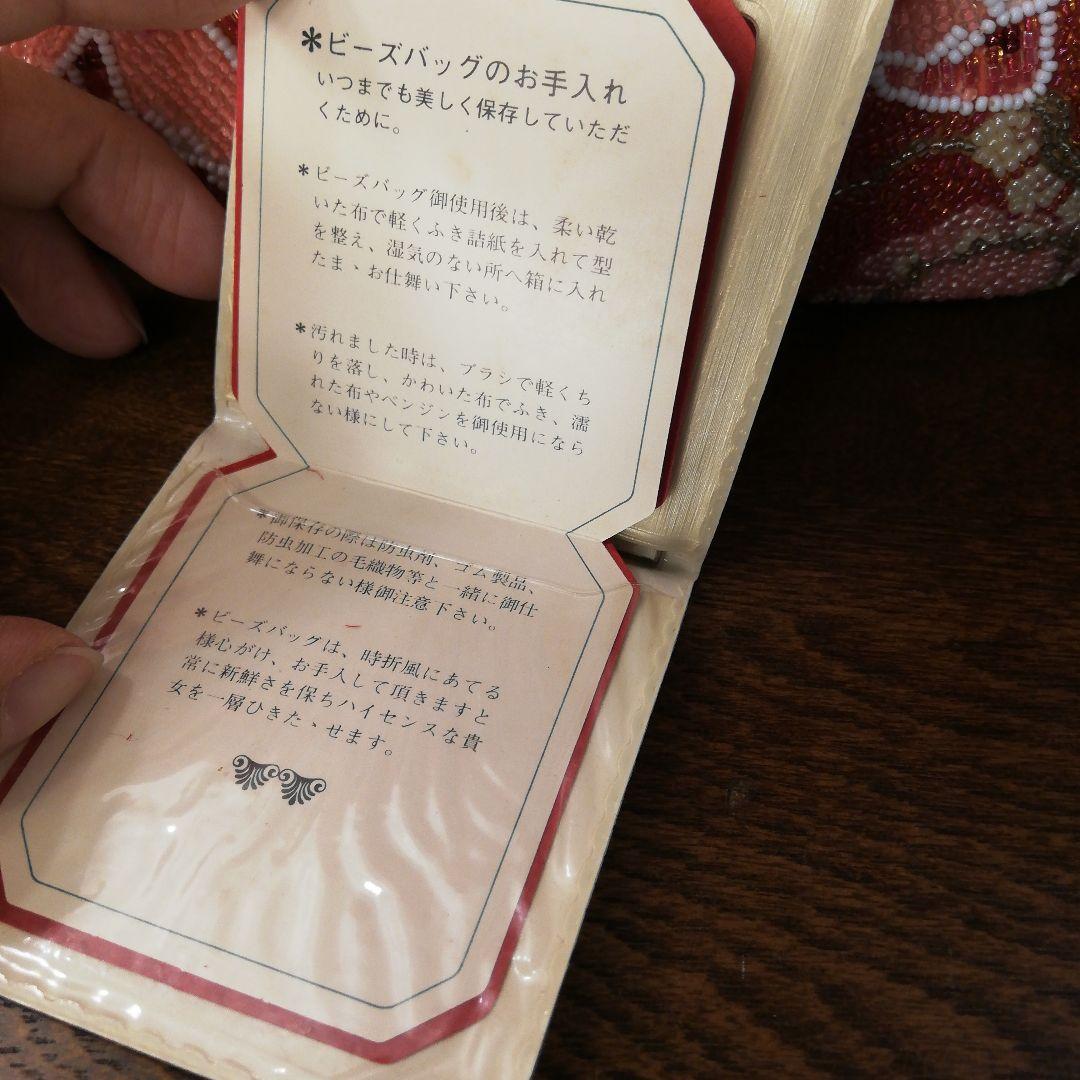 *ビーズバッグのお手入れ
いつまでも美しく保存していただ
くために。
*ビーズバッグ御使用後は、柔い乾
いた布で軽くふき詰紙を入れて型
を整え、湿気のない所へ箱に入れ
たまゝお仕舞い下さい。
*汚れました時は、ブラシで軽くち
りを落し、かわいた布でふき、濡
れた布やベンジンを御使用になら
ない様にして下さい。
*御保存の際は防虫剤、ゴム製品、
防虫加工の毛織物等と一緒に御仕
舞にならない様御注意下さい。
*ビーズバッグは、時折風にあてる
様心がけ、お手入して頂きますと
常に新鮮さを保ちハイセンスな貴
女を一層ひきたゝせます。